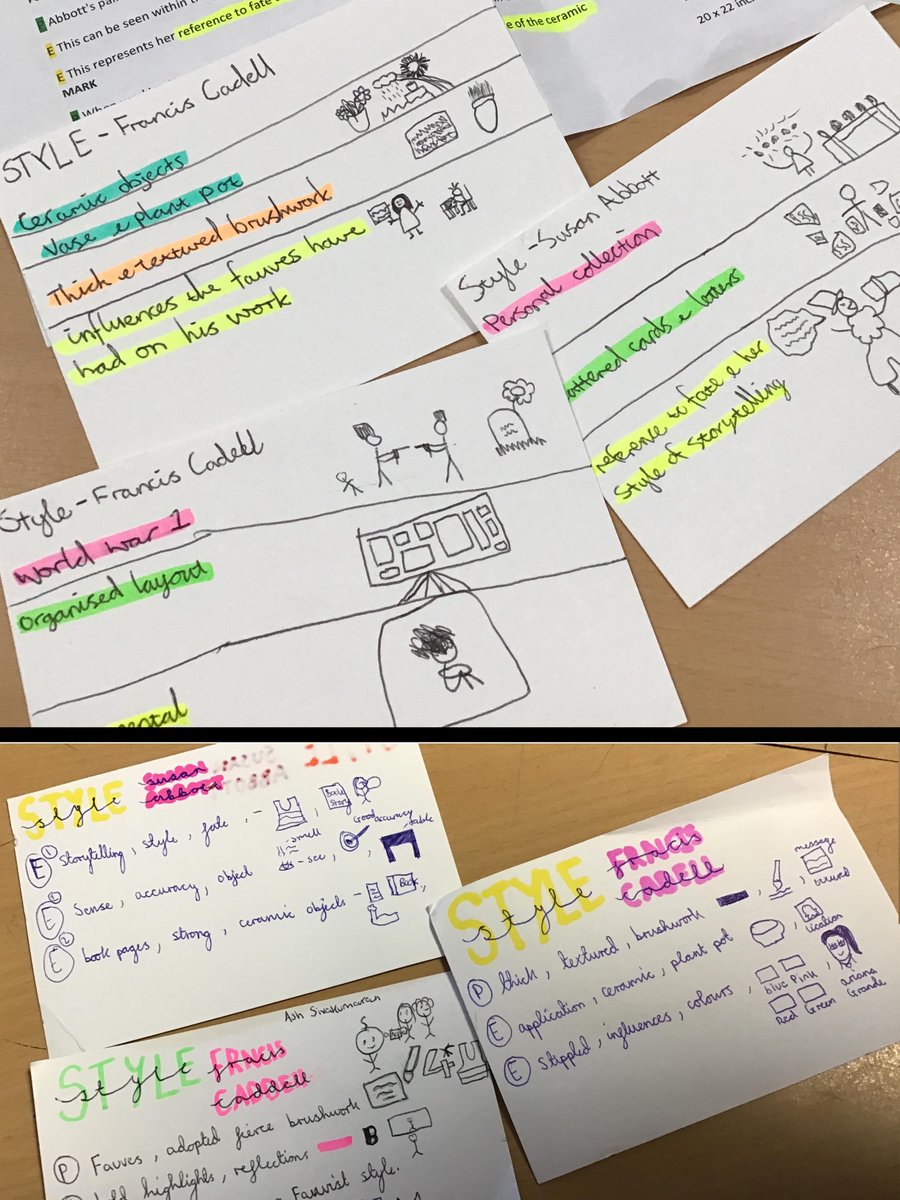 Abbott's
E This can be seen within the
E This represents her reference to fate
MARK
e of the ceramic
STYLE - Francis Cadell
Ceramic objects
Vase & plant pot
Thick & textured brushwork
influences the fauves have
had on his work
Style - Susan Abbott
Personal collection
cards & letters
reference to fate & her
Style of Storytelling
Style - Francis Cadell
World war 1
organised layout
STYLE
style susan
abbott
E 1 Storytelling, style, fate, -
Body
Story
Good accuracy
E Sense, accuracy, object
smell
- see
table
E 2 book pages, strong, ceramic objects -
Book
STYLE
style FRANCIS
CADELL
P thick, textured, brushwork
message
E application, ceramic, plant pot
E Stippled, influences, colours,
blue Pink
Red Green
ariana
Grande
Ash Sivakumaran
STYLE
style FRACIS
CADDELL
P Fauves, adopted fierce brushwork
highlights, reflections
B
Fauvist style.